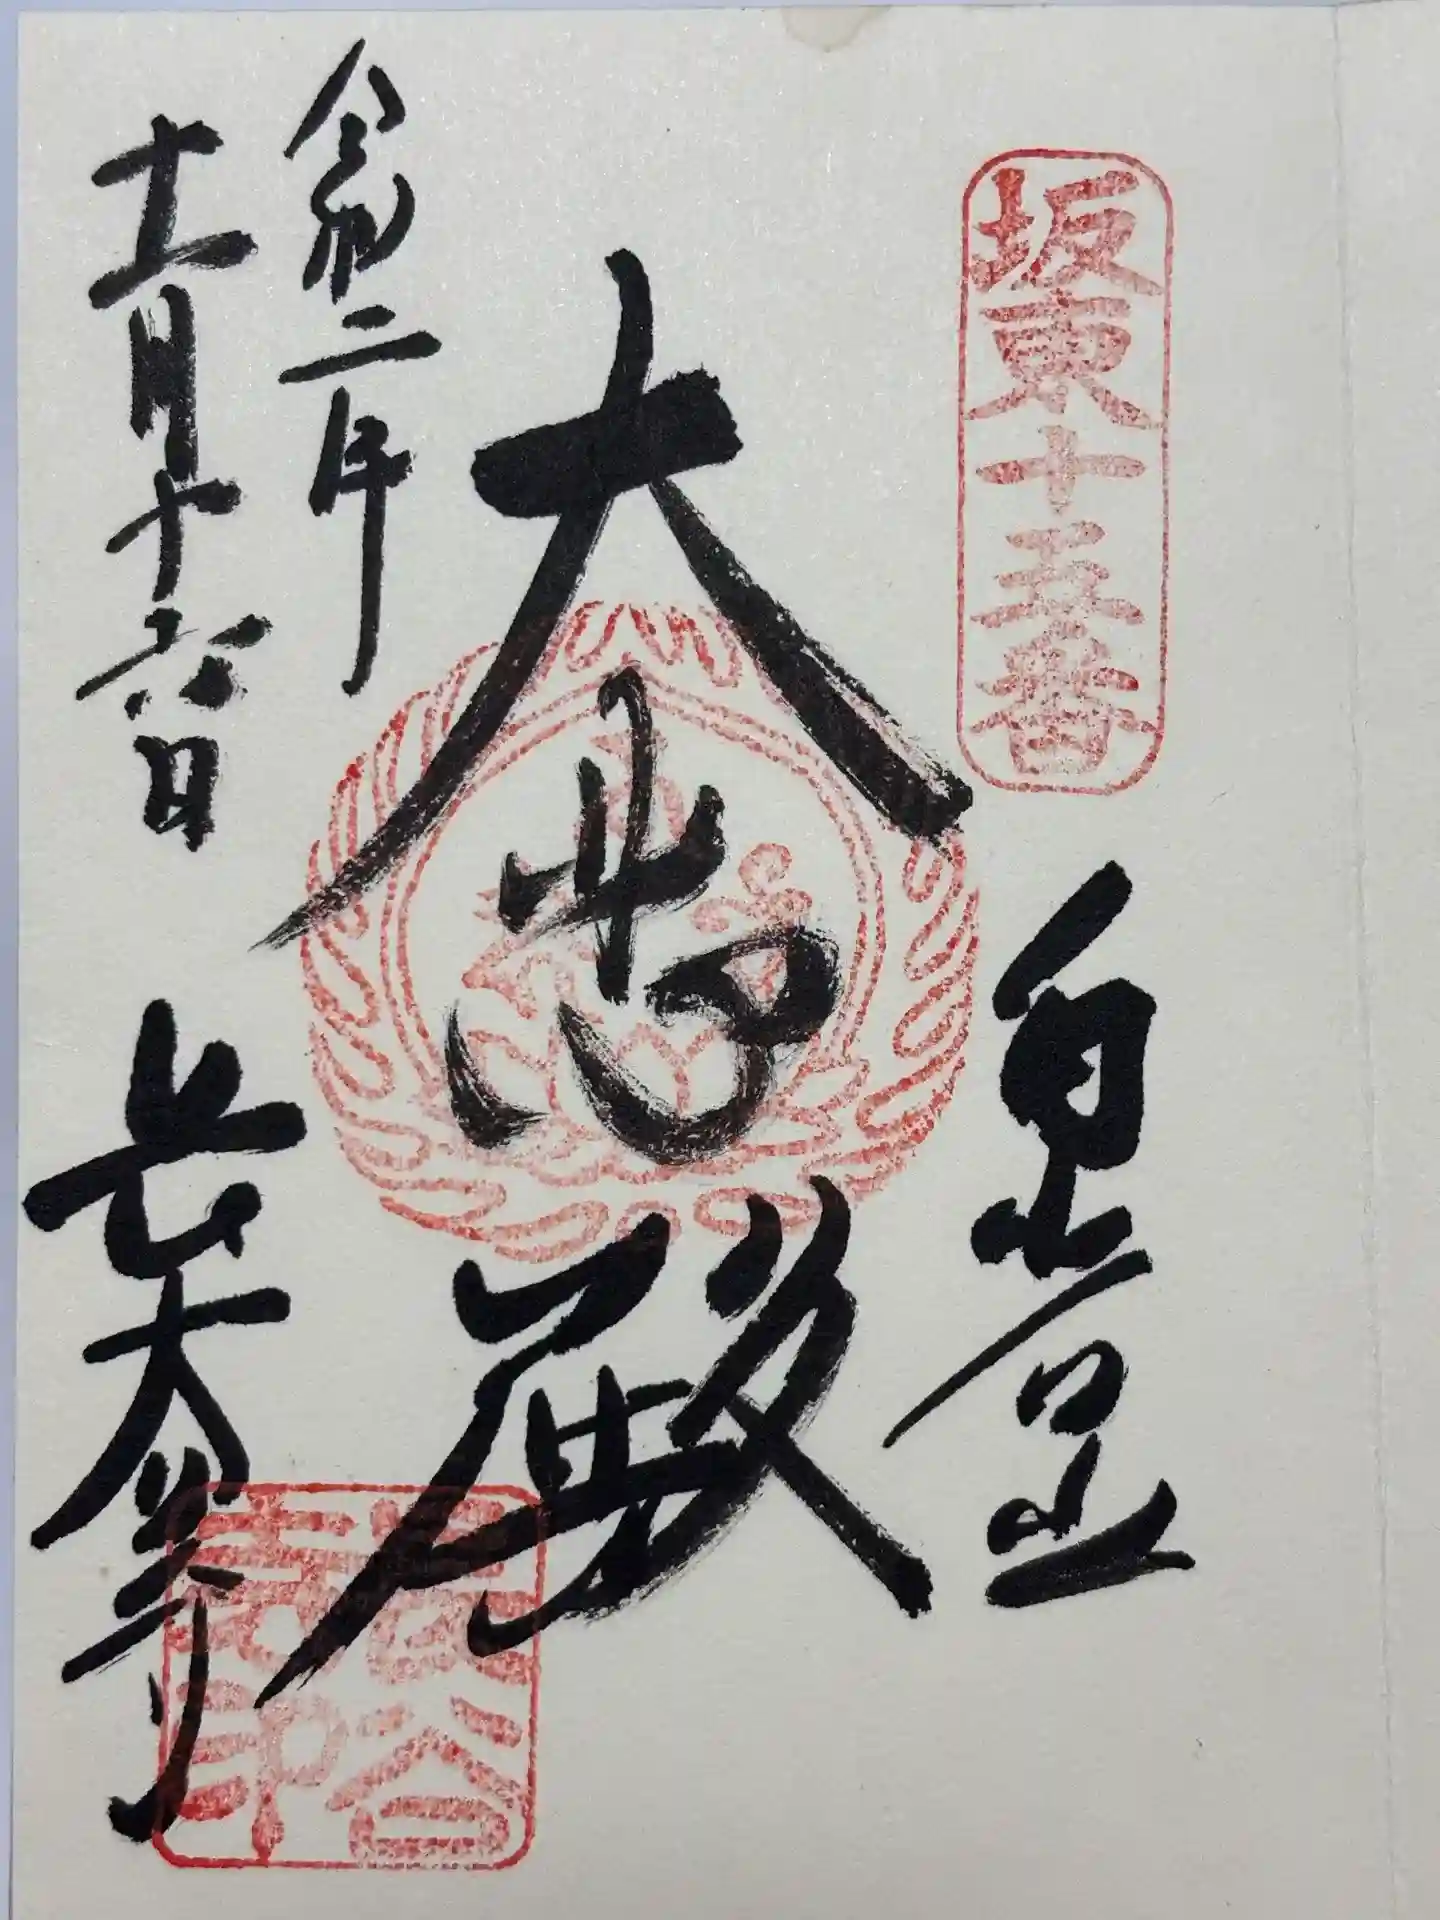 坂東十五番
白岩山
大悲殿
令和二年
十一月十六日
長谷寺
長谷
寺印